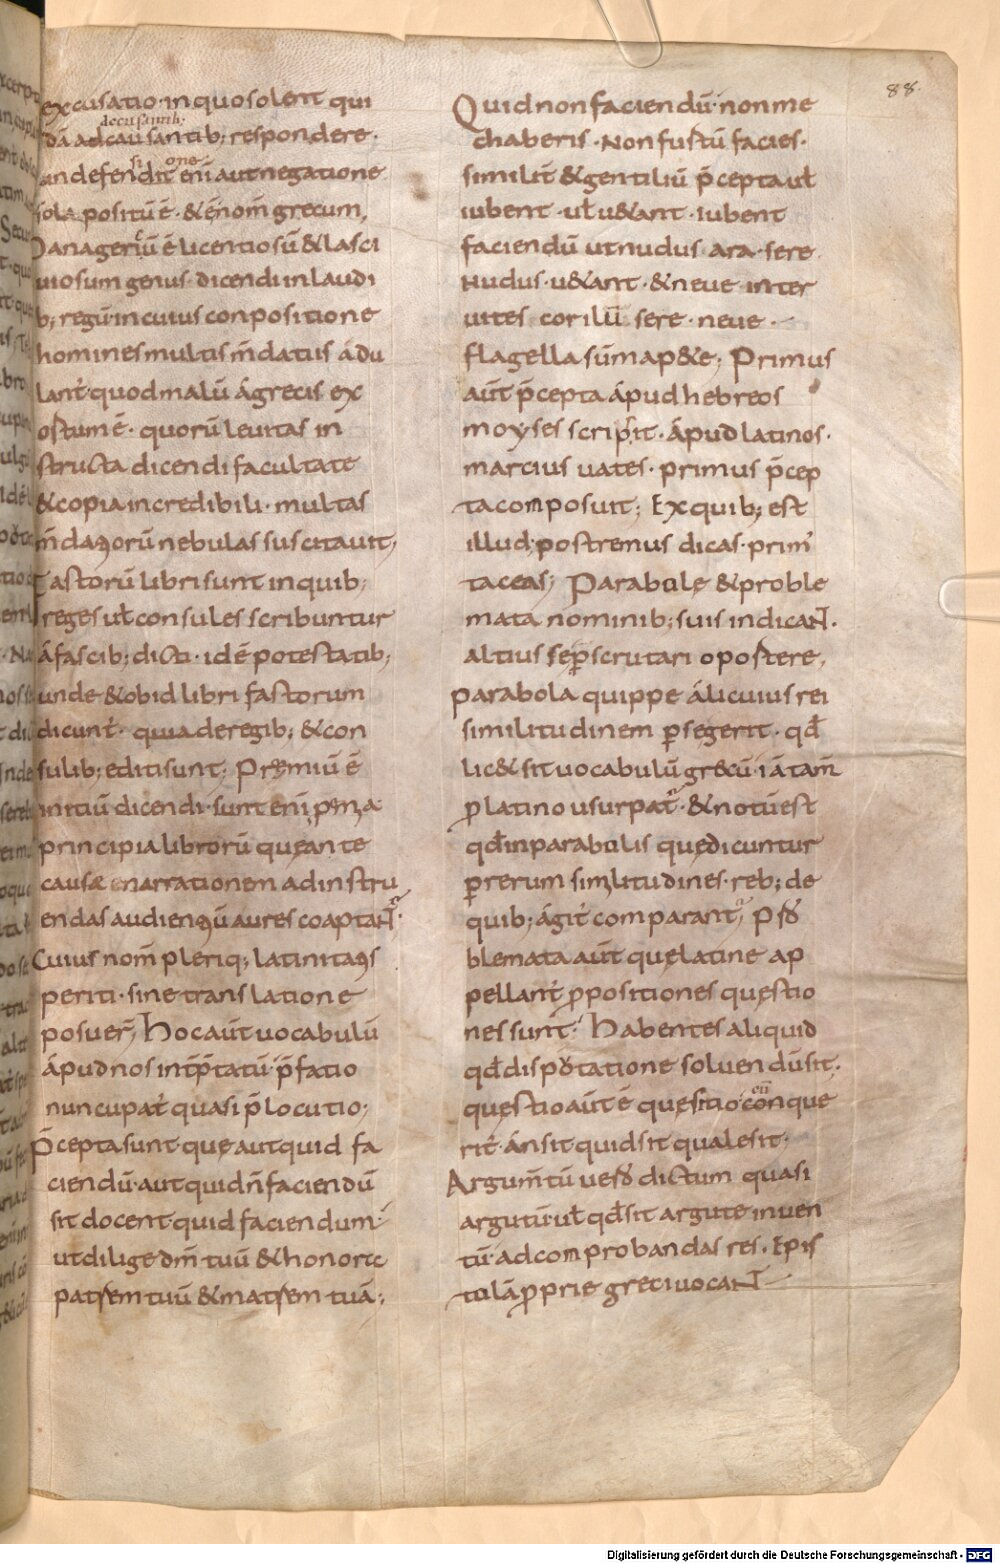 88.
excusatio· in quo solent qui
accusantib;
dā adcausantib; respondere·
si one
an defendit enī aut negatione
sola positū ē· & ē nom̄ grecum,
Panagericū ē licentiosū & lasci
uiosum genus· dicendi in laudi
b; regū in cuius conpositione
homines multis m̄datiis ádu
lant́· quod malū á grecis ex
ostum ē· quorū leuitas in
structa dicendi facultate
& copia incredibili· multas
m̄datiorū nebulas suscitauit;
Fastorū libri sunt in quib;
reges uł consules scribuntur
á fascib; dicti· id ē potestatib;
unde & obid libri fastorum
dicunt́· quia de regib; & con
sulib; editi sunt; Proęmiū ē
initiū dicendi· sunt enī proęmia
principia librorū quę ante
causæ enarrationem ad instru
endas audientiū aures coaptant́·
Cuius nom̄ pleriq; latinitatis
periti· sine translatione
posuer̄; Hoc aūt uocabulū
ápud nos int̄p̄tatū· p̄fatio
nuncupat́ quasi p̄locutio;
P̄cepta sunt· que aut quid fa
ciendū· aut quid n̄ faciendū
sit docent· quid faciendum·
ut dilige dm̄ tuū & honore
patrem tuū & matrem tuā;
Quid non faciendū· non me
chaberis· Non fustū facies·
similit̄ & gentiliū p̄cepta uł
iubent· uł u&ant· iubent
faciendū ut nudus· ara· sere
Nudus· u&ant· & neue· inter
uites corilū sere· neue·
flagella sūma p&e; Primus
aūt p̄cepta ápud hebreos
moyses scripsit· ápud latinos·
marcius uates· primus p̄cep
ta composuit; Ex quib; est
illud· postremus dicas· prim'
taceas; Parabule & proble
mata nominib; suis indicant·
altius se perscrutari opostere,
parabola quippe álicuius rei
similitudinem p̱ se gerit· qđ
lic& sit uocabulū grecū· iā tam̄
p̱ latino usurpat́· & notū est
qđ in parabulis quę dicuntur
p̱ rerum similitudines· reb; de
quib; ágit́ comparant́; Pro
blemata aūt que latine ap
pellant́ p̱positiones questio
nes sunt· Habentes aliquid
qđ disputatione soluendū sit·
en
questio aūt ē quesitio· con que
rit́· án sit quid sit quale sit·
Argum̄tū uero dictum quasi
argutū· uł qđ sit argute inuen
tū· ad comprobandas res· Epis
tulā p̱prie greci uocant
Digitalisierung gefördert durch die Deutsche Forschungsgemeinschaft - DFG